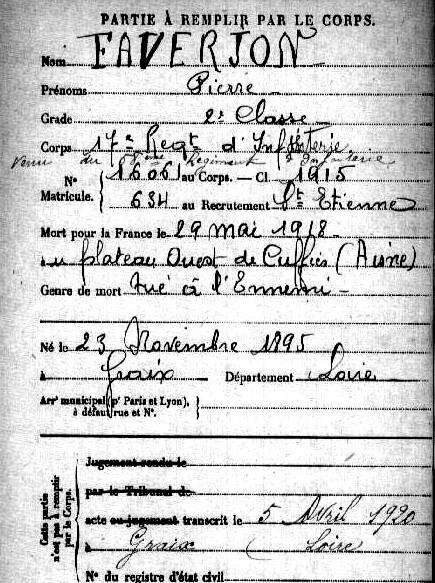 PARTIE À REMPLIR PAR LE CORPS.
Nom FAVERJON
Prénoms Pierre
Grade 2e Classe
Corps 17e Regt d'Infanterie
Venu du Régiment d'Infanterie
No Matricule. { 16061 au Corps. — Cl 1915
634 au Recrutement St Etienne
Mort pour la France le 29 mai 1918
au plateau Ouest de Cuffies (Aisne)
Genre de mort Tué à l'Ennemi
Né le 23 Novembre 1895
à Graix Département Loire
Arr' municipal (p' Paris et Lyon), à défaut rue et No. }
Cette partie n'est pas à remplir par le Corps.
Jugement rendu le
par le Tribunal de
acte ou jugement transcrit le 5 Avril 1920
à Graix (Loire
No du registre d'état civil